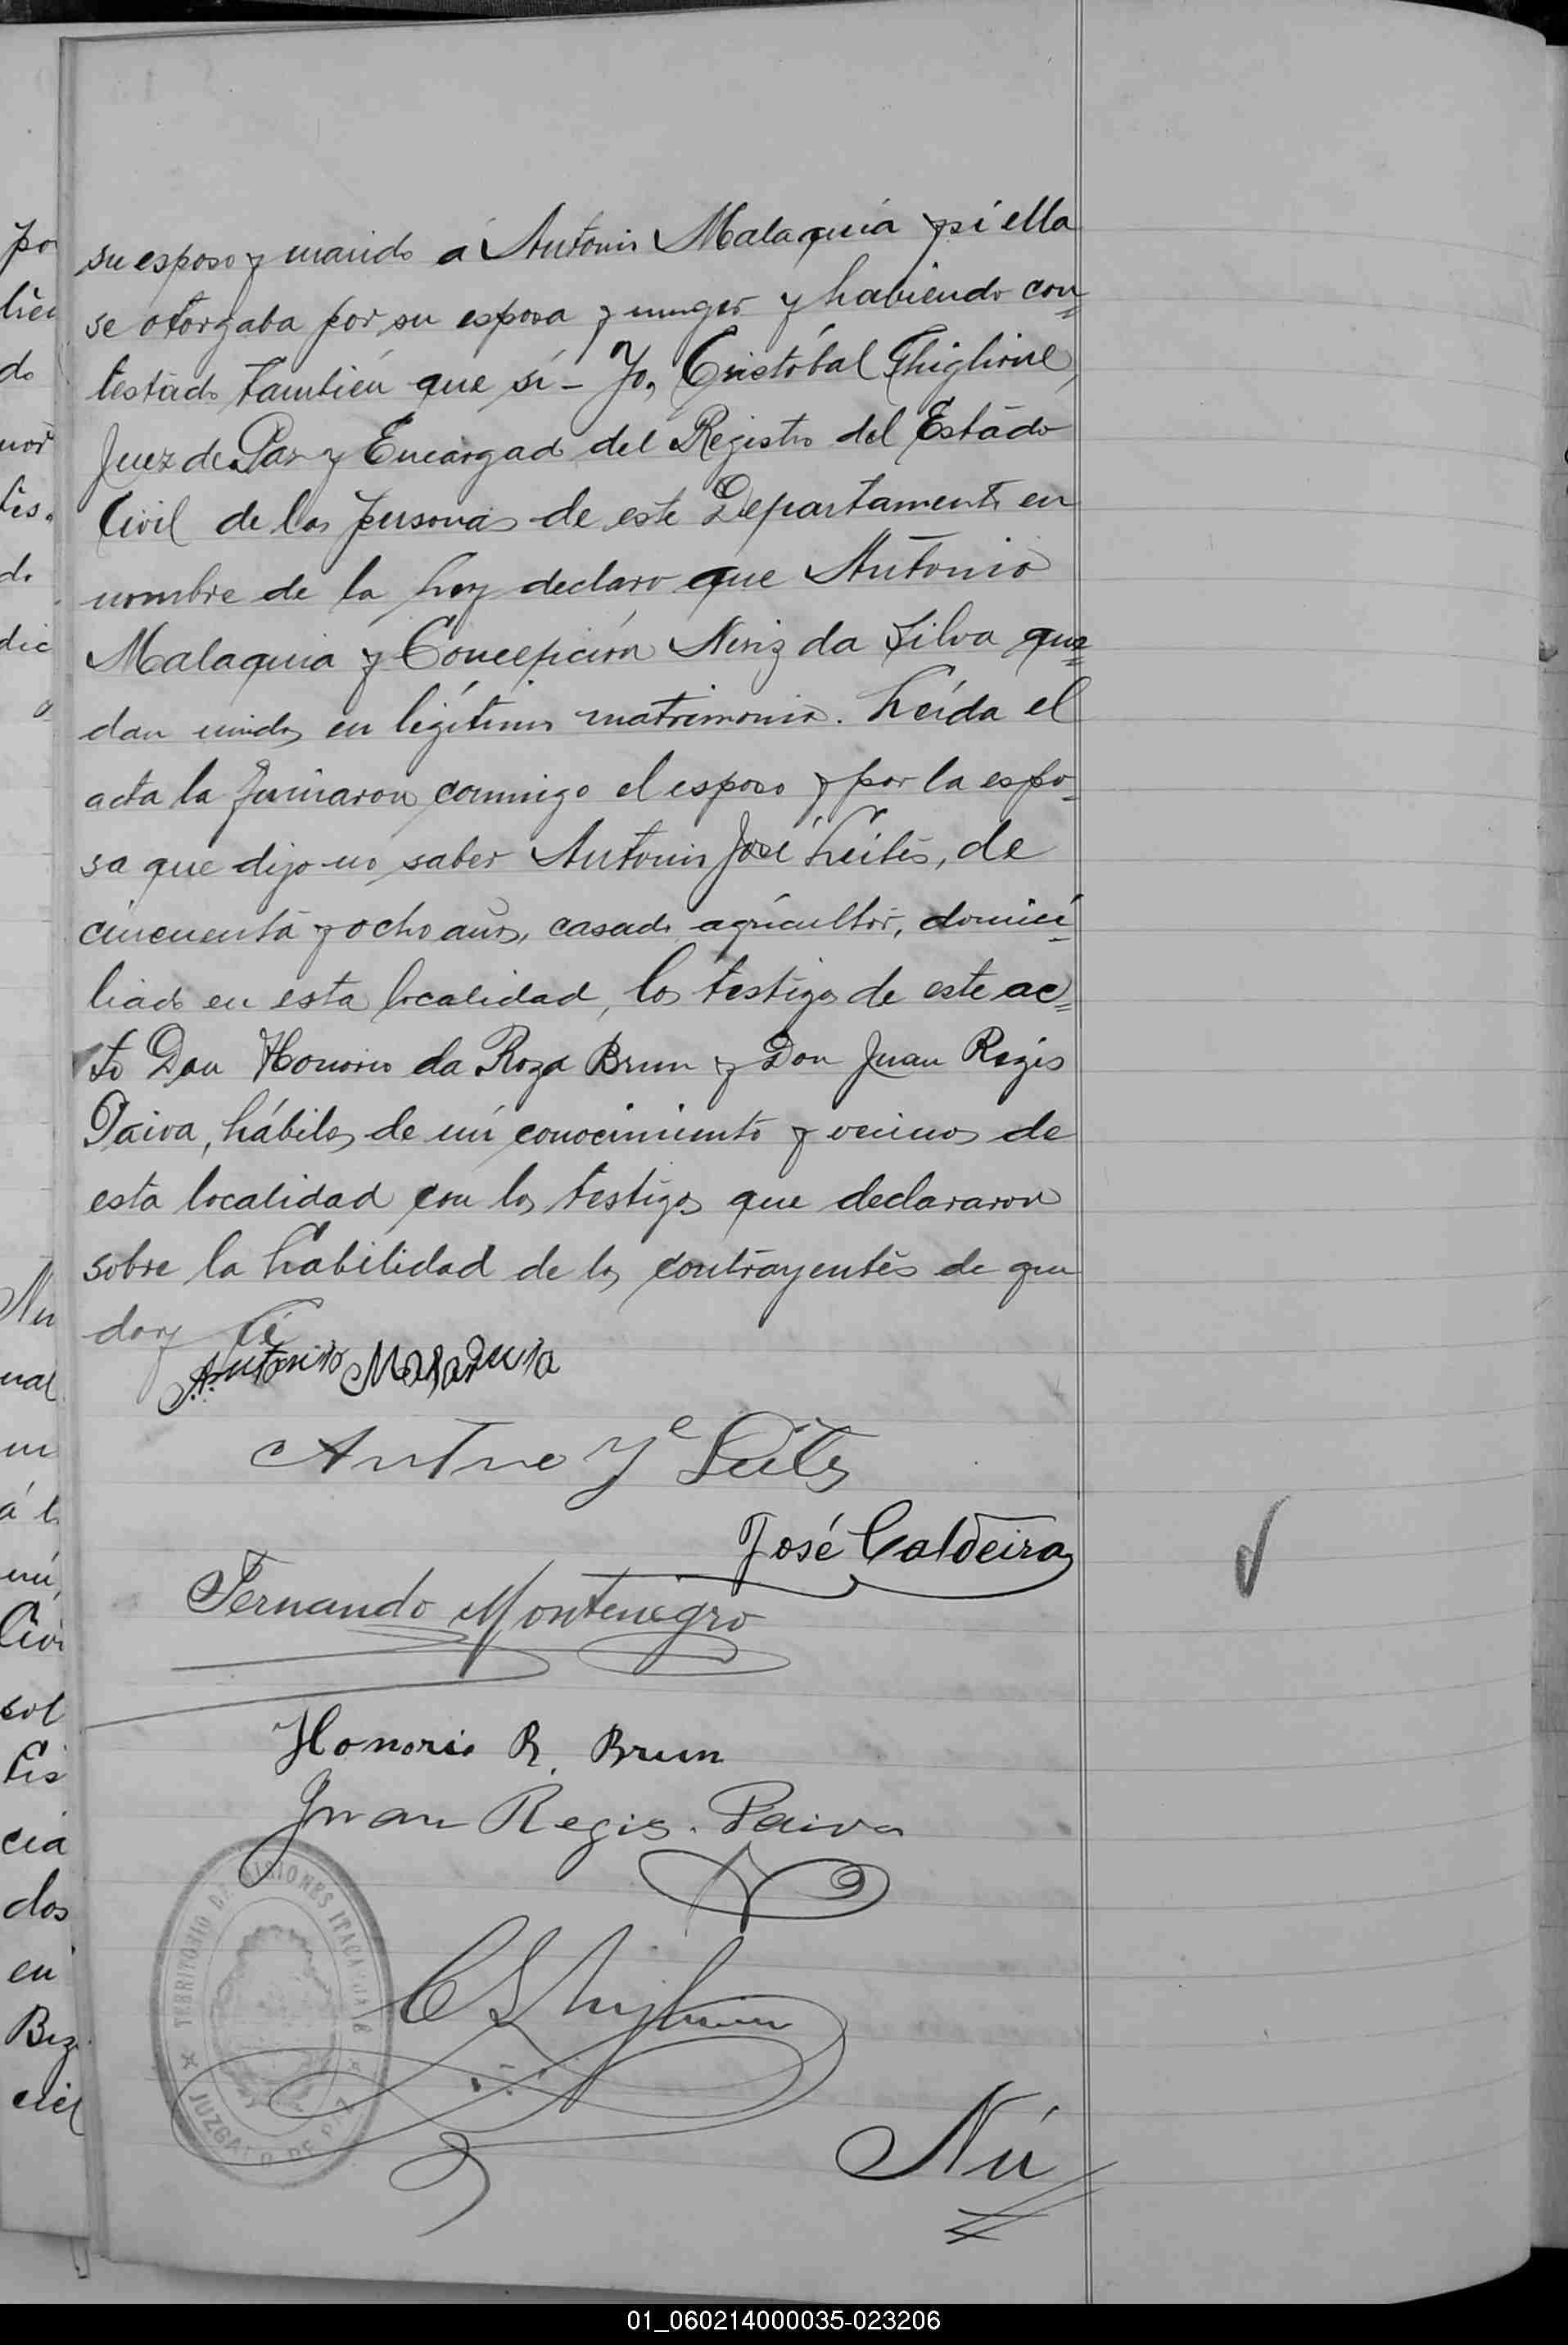 su esposo y marido á Antonio Malaquia y si ella
se otorgaba por su esposa y muger y habiendo con=
testado también que sí - Yo, Cristóbal Ghiglione,
Juez de Paz y Encargado del Registro del Estado
Civil de las personas de este Departamento en
nombre de la Ley declaro que Antonio
Malaquia y Concepción Neriz da Silva que=
dan unidos en legítimo matrimonio. Leída el
acta la firmaron conmigo el esposo y por la espo=
sa que dijo no saber Antonio José Leites, de
cincuenta y ocho años, casado agricultor, domici=
liado en esta localidad, los testigos de este ac=
to Don Honorio da Roza Brum y Don Juan Regis
Paiva, hábiles de mi conocimiento y vecinos de
esta localidad con los testigos que declararon
sobre la habilidad de los contrayentes de que
doy fé
Antonio Malaquia
Antno Je Leites
José Caldeira
Fernando Montenegro
Honorio R. Brum
Juan Regis. Paiva
TERRITORIO DE MISIONES
JUZGADO DE PAZ
Nú
po
do
dic
Nu
á l
sol
cia
dos
en
01_060214000035-023206